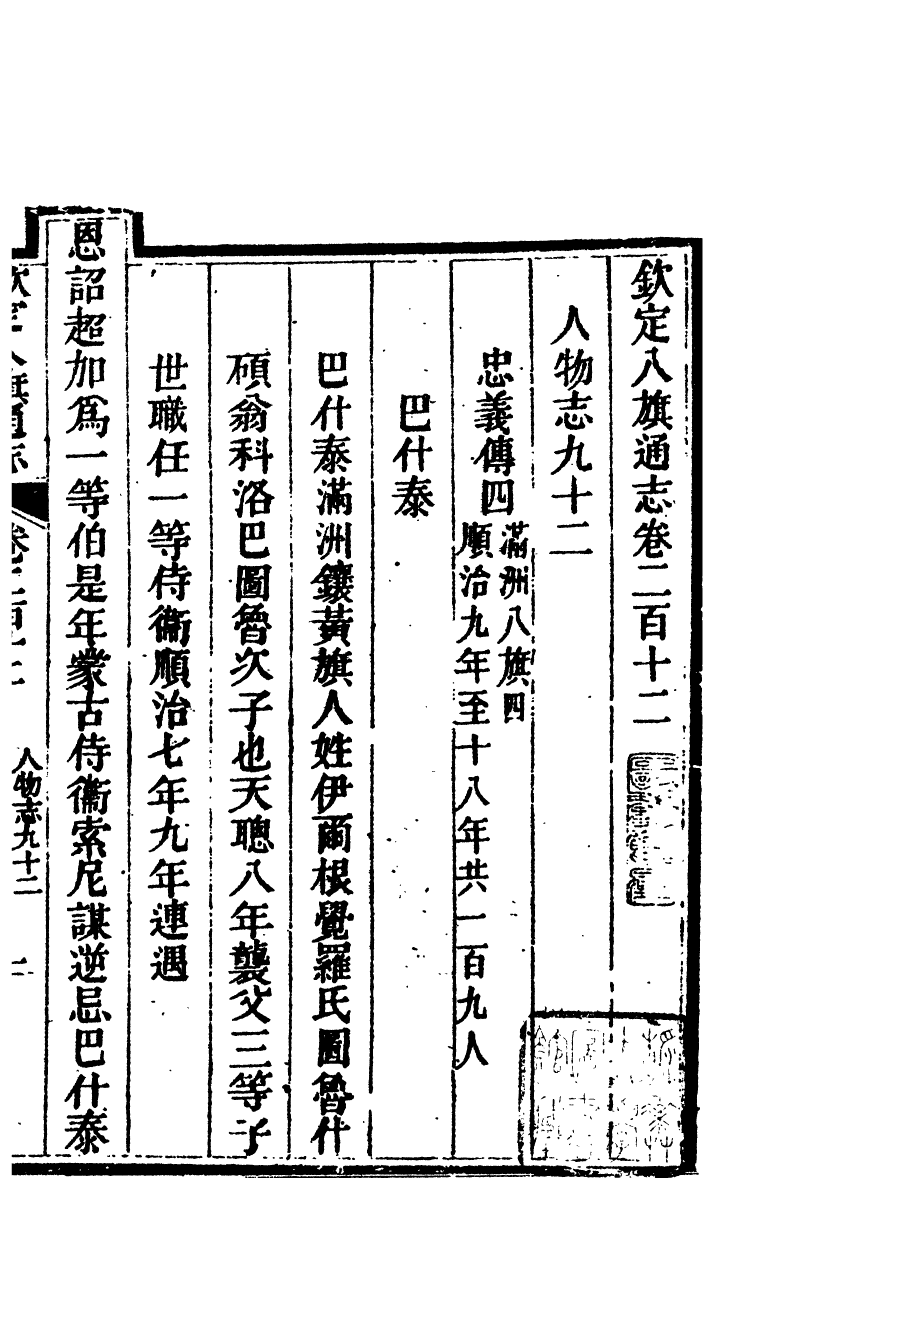 欽定八旗通志卷二百十二
人物志九十二
忠義傳四
滿洲八旗四
順治九年至十八年共一百九人
巴什泰
巴什泰滿洲鑲黃旗人姓伊爾根覺羅氏圖魯什
碩翁科洛巴圖魯次子也天聰八年襲父三等子
世職任一等侍衞順治七年九年連遇
恩詔超加爲一等伯是年蒙古侍衞索尼謀逆忌巴什泰
人物志九十二